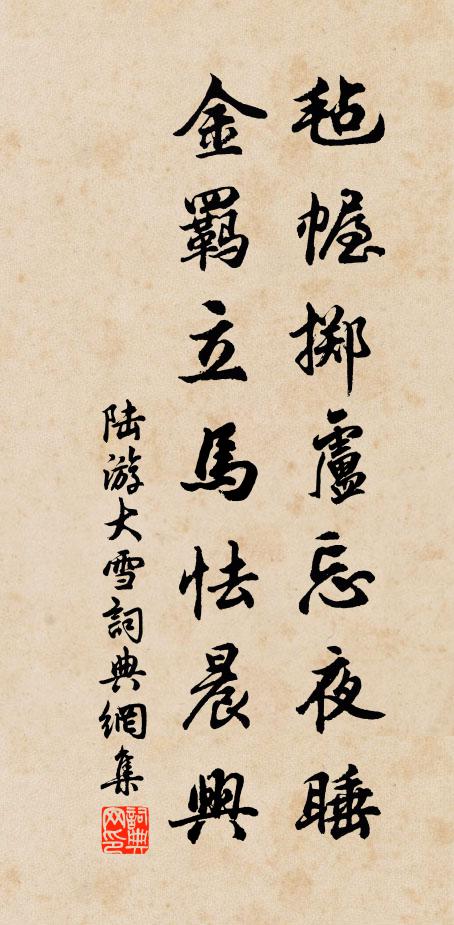 毡幄掷盧忘夜睡
金羈立馬怯晨興
陸游大雪詞典網集
詞典网印